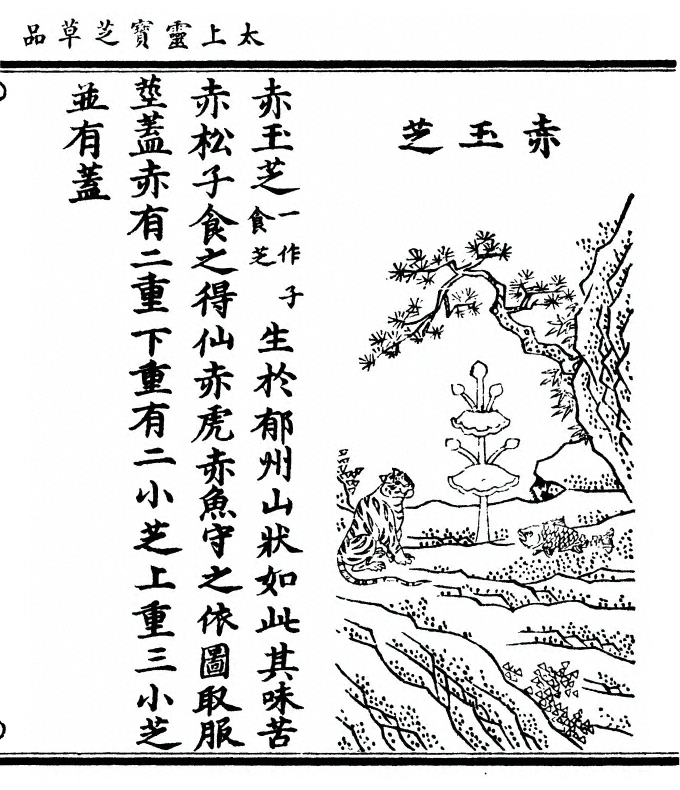 太上靈寶芝草品
赤玉芝
赤玉芝一作子食芝生於郁州山狀如此其味苦
赤松子食之得仙赤虎赤魚守之依圖取服
莖蓋赤有二重下重有二小芝上重三小芝
並有蓋